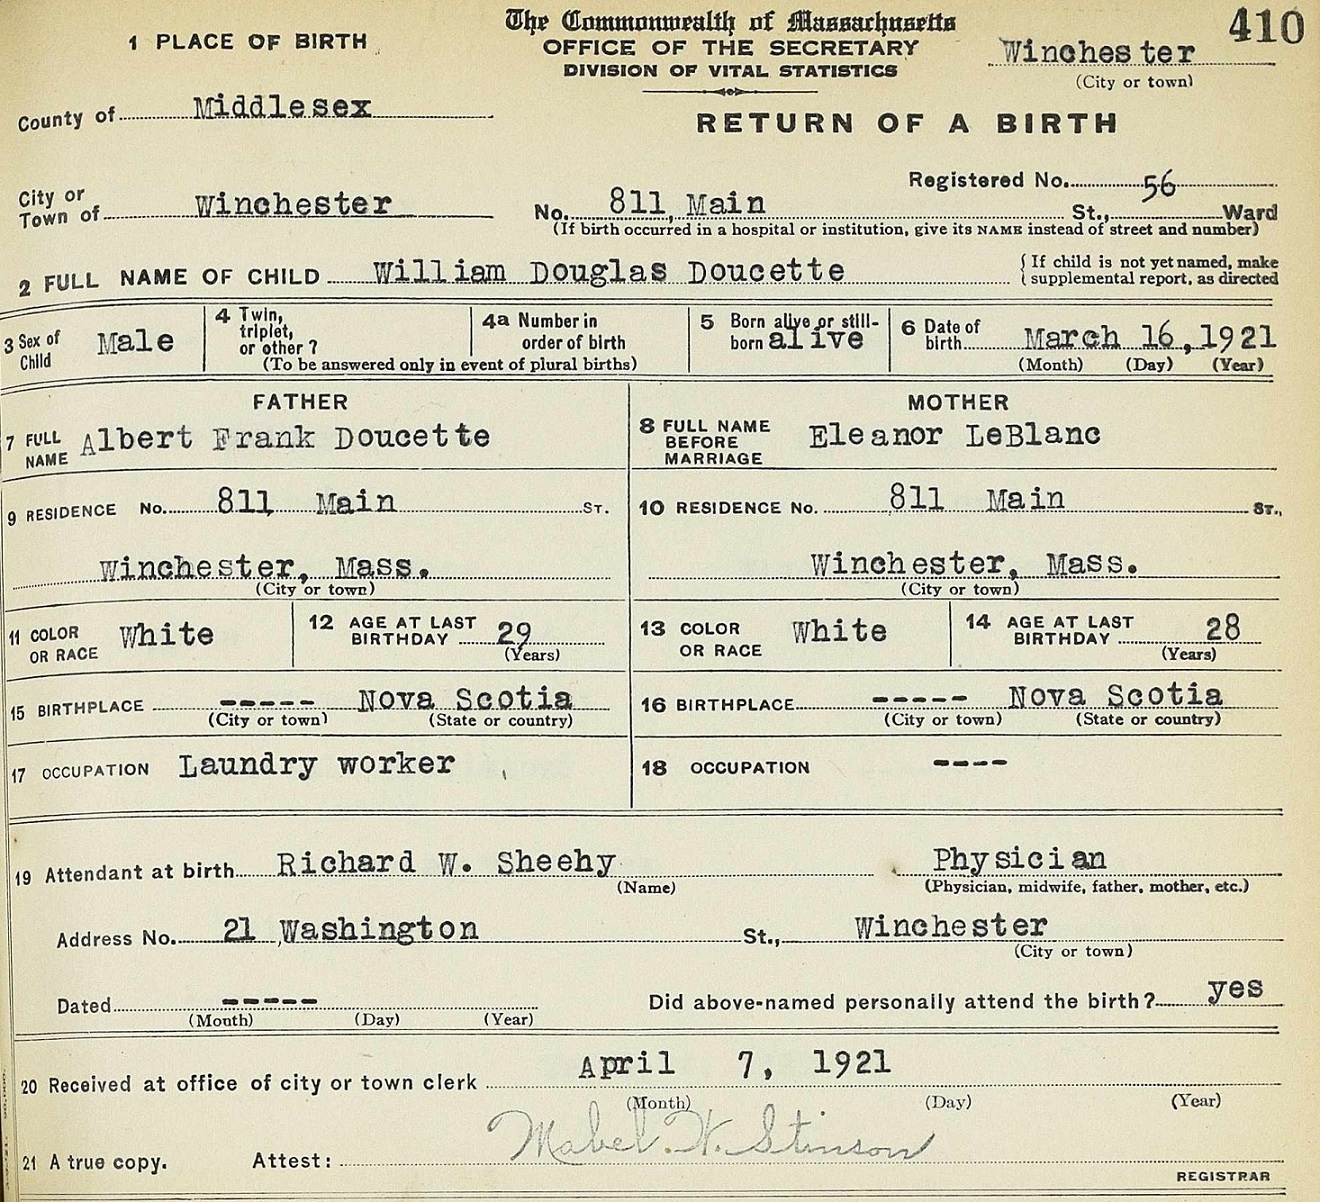 The Commonwealth of Massachusetts
410
1 PLACE OF BIRTH
OFFICE OF THE SECRETARY
DIVISION OF VITAL STATISTICS
Winchester
(City or town)
County of Middlesex
RETURN OF A BIRTH
Registered No. 56
City or Town of Winchester No. 811 Main St., Ward
(If birth occurred in a hospital or institution, give its NAME instead of street and number)
2 FULL NAME OF CHILD William Douglas Doucette
{ If child is not yet named, make
{ supplemental report, as directed
3 Sex of Child Male
4 Twin, triplet, or other?
4a Number in order of birth
(To be answered only in event of plural births)
5 Born alive or still-born alive
6 Date of birth March 16, 1921
(Month) (Day) (Year)
FATHER
MOTHER
7 FULL NAME Albert Frank Doucette
8 FULL NAME BEFORE MARRIAGE Eleanor LeBlanc
9 RESIDENCE No. 811 Main ST.
10 RESIDENCE No. 811 Main ST.,
Winchester, Mass.
(City or town)
Winchester, Mass.
(City or town)
11 COLOR OR RACE White
12 AGE AT LAST BIRTHDAY 29
(Years)
13 COLOR OR RACE White
14 AGE AT LAST BIRTHDAY 28
(Years)
15 BIRTHPLACE ----- Nova Scotia
(City or town) (State or country)
16 BIRTHPLACE ----- Nova Scotia
(City or town) (State or country)
17 OCCUPATION Laundry worker
18 OCCUPATION ----
19 Attendant at birth Richard W. Sheehy Physician
(Name) (Physician, midwife, father, mother, etc.)
Address No. 21 Washington St., Winchester
(City or town)
Dated ----- Did above-named personally attend the birth? yes
(Month) (Day) (Year)
20 Received at office of city or town clerk April 7, 1921
(Month) (Day) (Year)
21 A true copy. Attest: Mabel W. Stinson
REGISTRAR